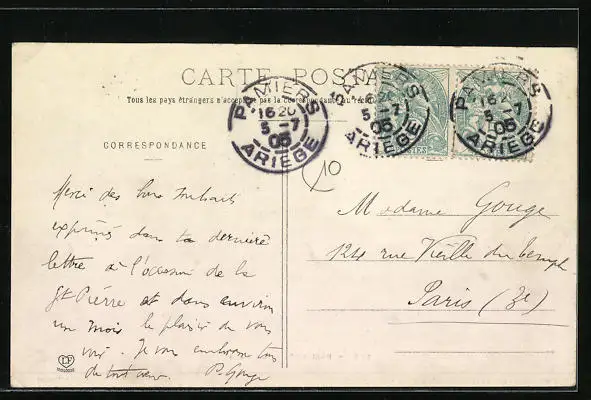 CARTE POSTA
Tous les pays étrangers n'acceptent pas la correspondance au
CORRESPONDANCE
PAMIERS
16 20
5 -7
05
ARIEGE
PAMIERS
16
5 -7
05
ARIEGE
PAMIERS
16
5 -7
05
ARIEGE
POSTES
10
Merci des bons souhaits
exprimés dans ta dernière
lettre à l'occasion de la
St Pierre et dans environ
un mois le plaisir de vous
voir. Je vous embrasse tous
de tout cœur P. Gouge
Madame Gouge
124 rue Vieille du Temple
Paris (3e)
LF
TOULOUSE